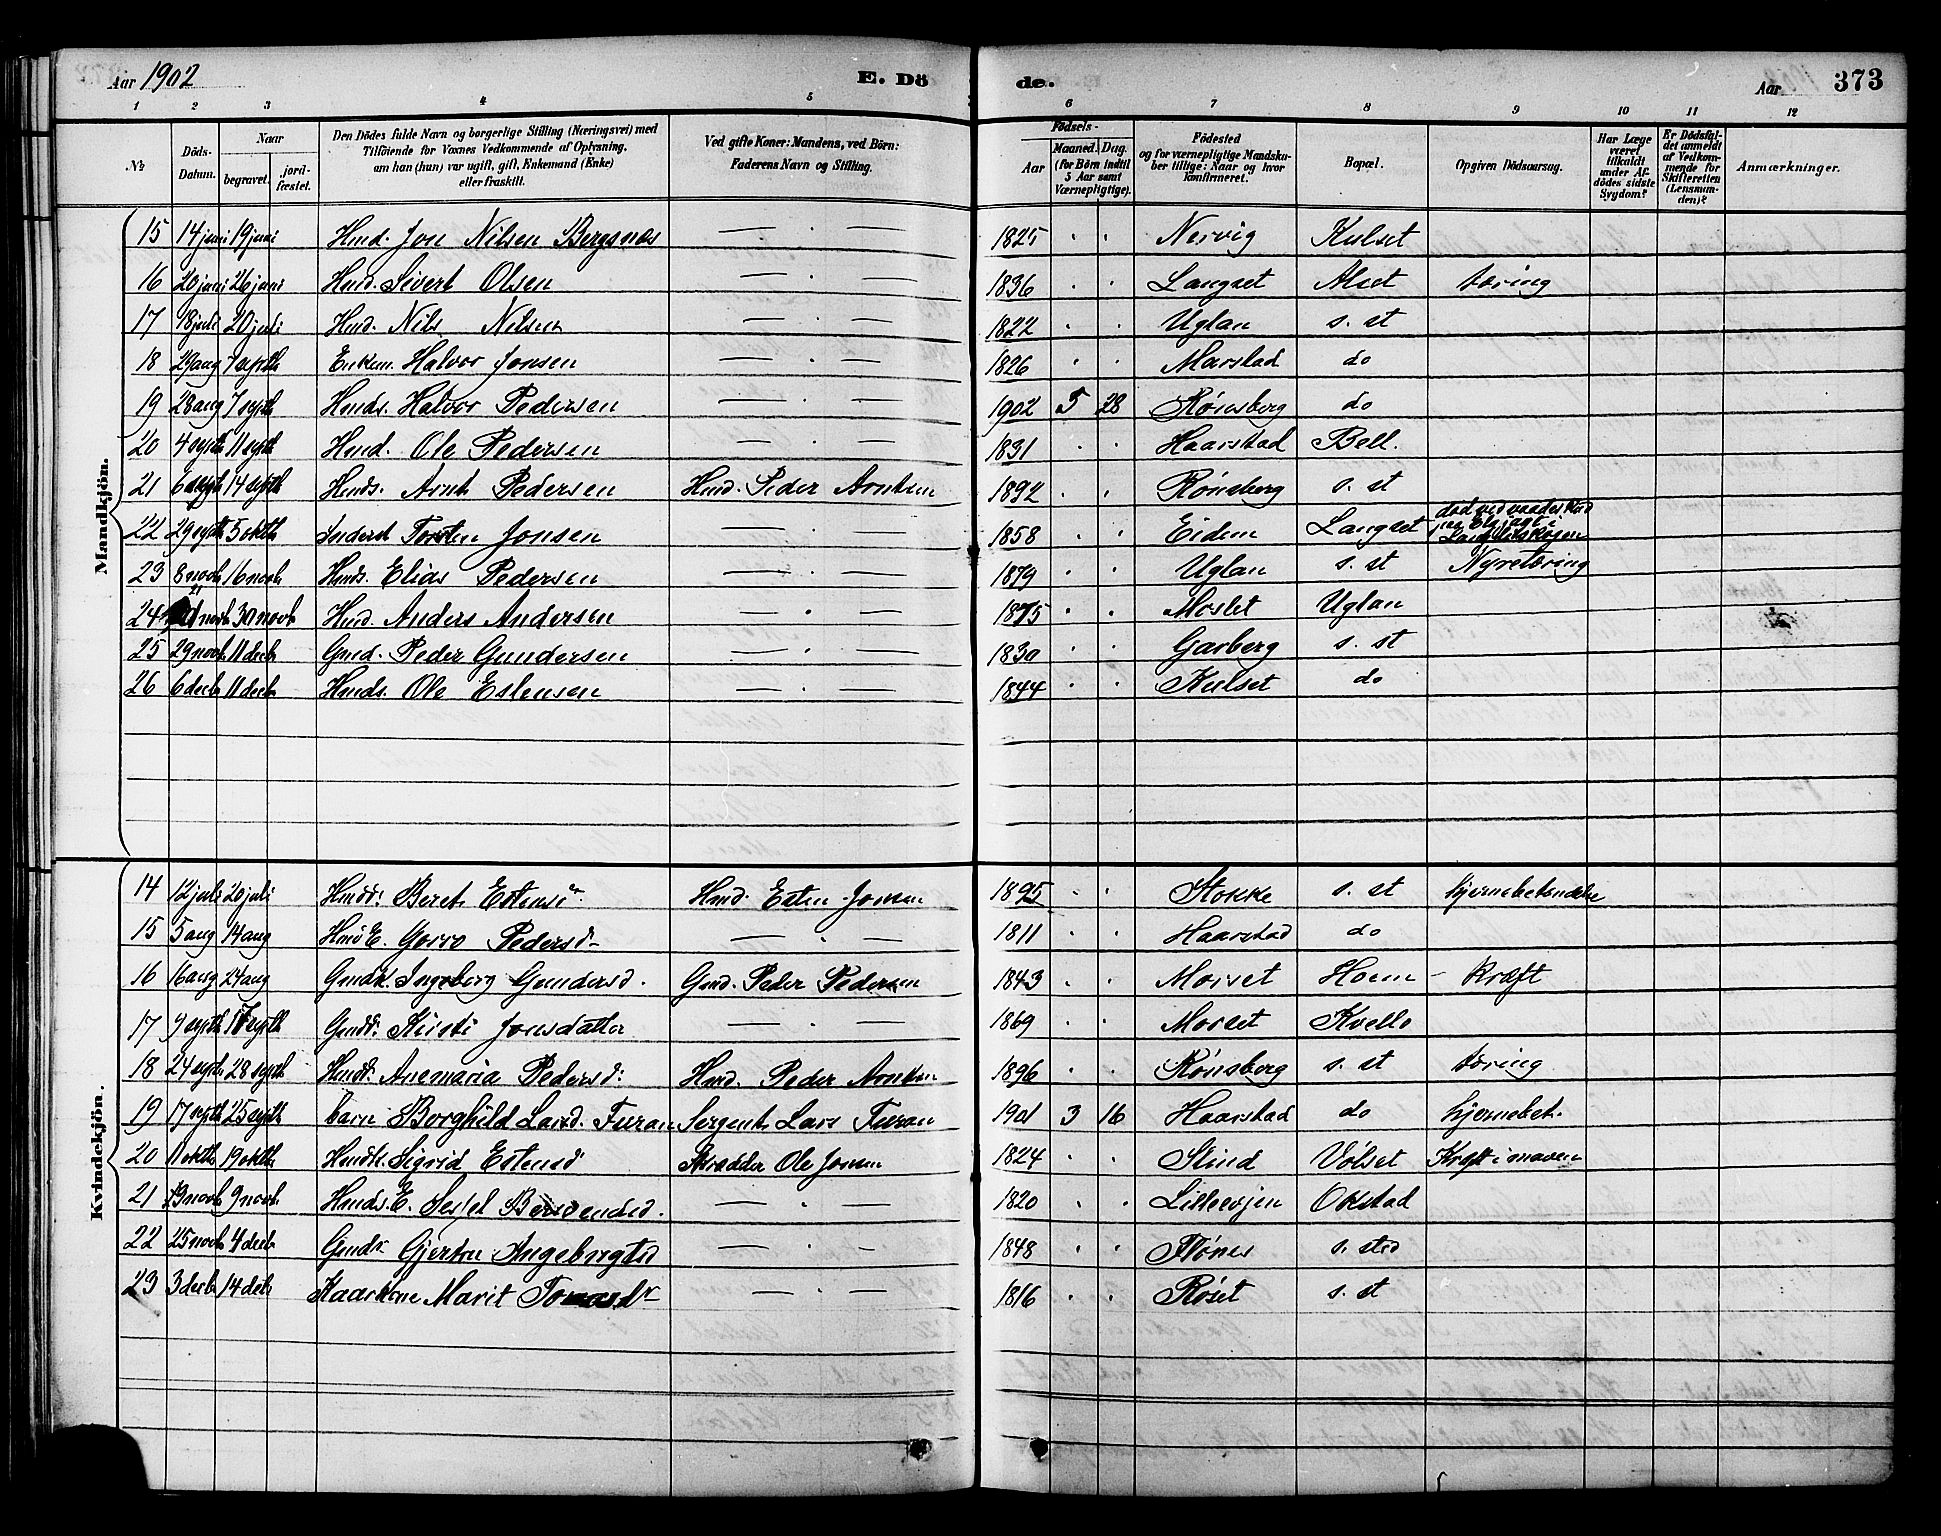 Aar 1902 E. Dö de. Aar 373
1 2 3 4 5 6 7 8 9 10 11 12
№ Döds-Datum. Naar begravet. jordfæstet. Den Dödes fulde Navn og borgerlige Stilling (Næringsvei) med Tilföiende for Voxnes Vedkommende af Oplysning, om han (hun) var ugift, gift, Enkemand (Enke) eller fraskilt. Ved gifte Koner: Mandens, ved Börn: Faderens Navn og Stilling. Födsels- Aar Maaned. Dag. (for Börn indtil 5 Aar samt Værnepligtige). Födested og for værnepligtige Mandskaber tillige: Naar og hvor konfirmeret. Bopæl. Opgiven Dödsaarsag. Har Læge været tilkaldt under Afdödes sidste Sygdom? Er Dödsfaldet anmeldt af Vedkommende for Skifteretten (Lensmanden)? Anmærkninger.
Mandkjön.
15 14 juni 19 juni Hmd. Jon Nilsen Bergsnes — . — 1825 . . Nervig Kulset
16 20 juni 26 juni Hmd. Sivert Olsen — . — 1836 . . Langset Alset tæring
17 18 juli 20 juli Hmd. Nils Nilsen — . — 1822 . . Uglan s. st
18 29 aug 7 septb Enkem. Halvor Jonsen — . — 1826 . . Marstad do
19 28 aug 7 septb Hmds. Halvor Pedersen — . — 1902 5 28 Rönsberg do
20 4 septb 11 septb Hmd. Ole Pedersen — . — 1831 . . Haarstad Bell.
21 6 septb 14 septb Hmds. Arnt Pedersen Hmd. Peder Arntsen 1892 . . Rönsberg s. st
22 29 septb 5 oktb Inderst Torsten Jonsen — . — 1858 . . Eidem Langset död ved vaadeskud paa Elgjagt i Langsetskogen
23 8 novb 16 novb Hmds. Elias Pedersen — . — 1879 . . Uglan s. st Nyretæring
24 21 novb 30 novb Hmd. Anders Andersen — . — 1875 . . Moslet Uglan
25 29 novb 11 decb Gmd. Peder Gundersen — . — 1830 . . Garberg s. st
26 6 decb 11 decb Hmds. Ole Estensen — . — 1844 . . Kulset do
Kvindekjön.
14 12 juli 20 juli Hmdd. Beret Estensd. Hmd. Esten Jonsen 1895 . . Stokke s. st hjernebetændelse
15 5 aug 14 aug Hmd E. Goro Pedersd. — . — 1811 . . Haarstad do
16 16 aug 24 aug Gmdk. Ingeberg Gundersd. Gmd. Peder Pedersen 1843 . . Morset Hoem kræft
17 9 septb 17 septb Gmdd. Kirsti Jonsdatter — . — 1869 . . Morset Kvello
18 24 septb 28 septb Hmdd. Anemaria Pedersd. Hmd. Peder Arntsen 1896 . . Rönsberg s. st tæring
19 17 septb 25 septb barn Borghild Larsd. Furan Sergent Lars Furan 1901 3 16 Haarstad do hjernebet.
20 11 oktb 19 oktb Hmdk. Sigrid Estensd Skrædder Ole Jonsen 1824 . . Slind Völset Kræft i maven
21 novb 9 novb Hmds. E. Sessel Bersvendsd. — . — 1820 . . Lillevojen Okstad
22 25 novb 4 decb Gmdk. Gjertru Ingebrigtsd — . — 1848 . . Flönes s. sted
23 3 decb 14 decb Kaarkone Marit Tomasdr — . — 1816 . . Röset s. st